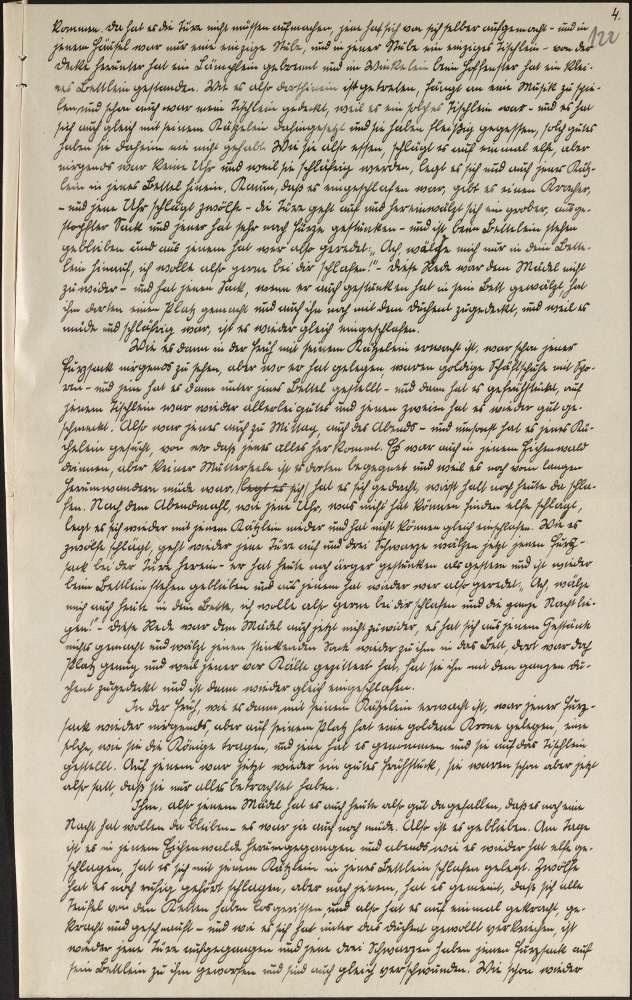 4.
122
kommen. Da hat es die Türe nicht müssen aufmachen, jene hat sich von sich selber aufgemacht - und in
jenem Häusel war nur eine einzige Stube, und in jener Stube ein einziges Tischlein - von der
Decke herunter hat ein Lämplein gebrennt und im Winkelein beim Hoffenster hat ein klei-
nes Bettlein gestanden. Wie es also dorthinein ist getreten, fängt an eine Musik zu spie-
len, und schon auch war wenn Tischlein gedeckt, weil es ein solches Tischlein war - und es hat
sich auch gleich mit seinem Kätzelein dahingesetzt und sie haben fleißig gegessen, solch gutes
haben sie daheim nie nicht gehabt. Wie sie also essen, schlägt es auf einmal elfe, aber
nirgends war keine Uhr und weil sie schläfrig werden, legt es sich und auch jenes Kätz-
lein in jenes Bettel hinein. Kaum, daß es eingeschlafen war, gibt es einen Kracher,
- und jene Uhr schlägt zwölfe - die Türe geht auf und hereinwälzt sich ein großer, ausge-
stopfter Sack und jener hat sehr nach Fürze gestunken - und ist beim Bettelein stehen
geblieben und aus jenem hat wer also geredet: „Ach, wälze mich nur in dein Bette-
lein hinauf, ich wolle also gerne bei dir schlafen!" - Diese Rede war dem Mädel nicht
zuwider - und hat jenen Sack, wenn er auch gestunken hat in sein Bett gewälzt, hat
ihm dorten einen Platz gemacht und auch ihn noch mit dem Duchent zugedeckt, und weil es
müde und schläfrig war, ist es wieder gleich eingeschlafen.
Wie es dann in der Früh mit seinem Kätzelein erwacht ist, war schon jener
Furzsack nirgends zu sehen, aber wo er hat gelegen, waren goldige Schaftschuhe mit Spo-
ren - und jene hat es dann unter jenes Bettel gestellt - und dann hat es gefrühstückt, auf
jenem Tischlein war wieder allerlei gutes und jenen zweien hat es wieder gut ge-
schmeckt. Also war jenes auch zu Mittag, auch des Abends - und umsonst hat es jenes Kü-
chelein gesucht, von wo daß jenes alles her kommt. Es war auch in jenem Eichenwald
drinnen, aber keiner Mutterseele ist es dorten begegnet und weil es noch vom langen
Herumwandern müde war, legt es sich hat es sich gedacht, wirst halt noch heute da schla-
fen. Nach dem Abendmahl, wie jene Uhr, was nicht hat können finden elfe schlägt,
legt es sich wieder mit jenem Kätzlein nieder und hat nicht können gleich einschlafen. Wie es
zwölfe schlägt, geht wieder jene Türe auf und drei Schwarze wälzen jetzt jenen Furz-
sack bei der Türe herein - er hat heute noch ärger gestunken als gestern und ist wieder
beim Bettlein stehen geblieben und aus jenem hat wieder wer also geredet: „Ach, wälze
mich auch heute in dein Bette, ich wolle also gerne bei dir schlafen und die ganze Nacht lie-
gen!" - Diese Rede war dem Mädel auch jetzt nicht zuwider, es hat sich aus jenem Gestank
nichts gemacht und wälzt jenen stinkenden Sack wieder zu ihm in das Bett, dort war doch
Platz genug und weil jener vor Kälte gezittert hat, hat sie ihn mit dem ganzen Du-
chent zugedeckt und ist dann wieder gleich eingeschlafen.
In der Früh, wie es dann, mit seinem Kätzelein erwacht ist, war jener Furz-
sack wieder nirgends, aber auf seinem Platz hat eine goldene Krone gelegen, eine
solche, wie sie die Könige tragen, und jene hat es genommen und sie auf das Tischlein
gestellt. Auf jenem war jetzt wieder ein gutes Frühstück, sie waren schon aber jetzt
also satt, daß sie nur alles betrachtet haben.
Ihm, also jenem Mädel hat es auch heute also gut da gefallen, daß es noch eine
Nacht hat wollen da bleiben - es war ja auch noch müde. Also ist es geblieben. Am Tage
ist es in jenem Eichenwalde herumgegangen und abends, wie es wieder hat elfe ge-
schlagen, hat es sich mit jenem Kätzlein in jenes Bettlein schlafen gelegt. Zwölfe
hat es noch ruhig gehört schlagen, aber nach jenem, hat es gemeint, daß sich alle
Teufel von den Ketten haben losgerissen, und also hat es auf einmal gekracht, ge-
kracht und geschnauft - und wie es sich hat unter das Duchent gewollt verkriechen, ist
wieder jene Türe aufgegangen und jene drei Schwarzen haben jenen Furzsack auf
sein Bettlein zu ihm geworfen und sind auch gleich verschwunden. Wie schon wieder